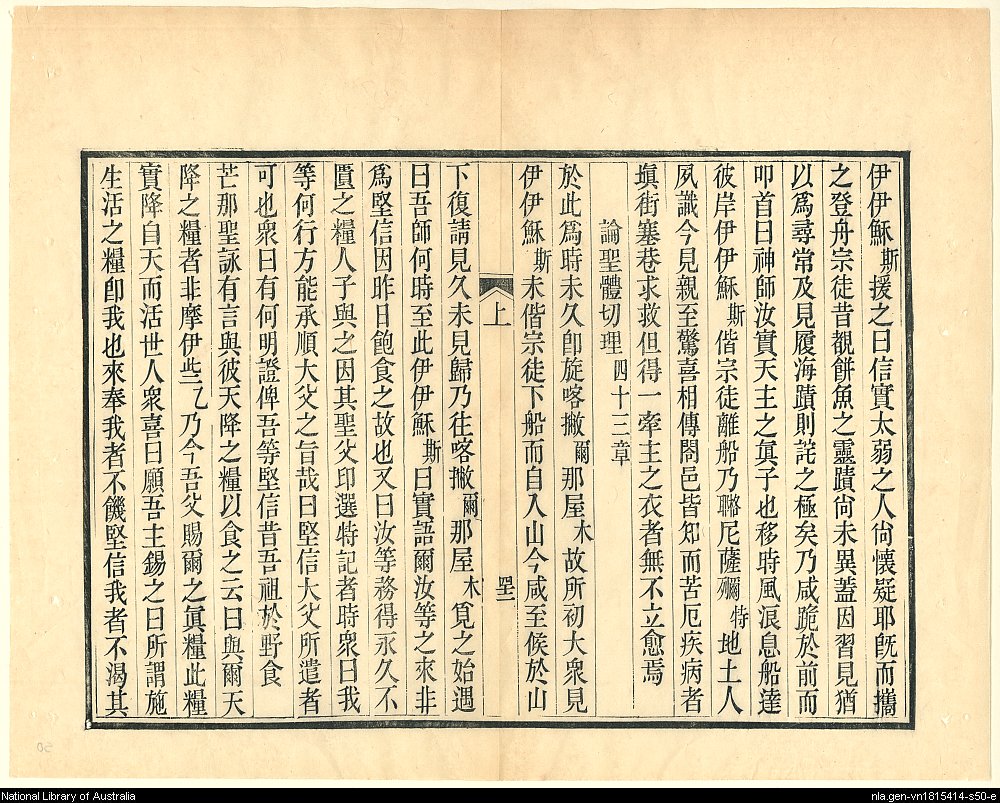 伊伊穌斯援之曰信實太弱之人尙懷疑耶旣而攜
之登舟宗徒昔觀餅魚之靈蹟尙未異蓋因習見猶
以爲尋常及見履海蹟則詫之極矣乃咸跪於前而
叩首曰神師汝實天主之眞子也移時風浪息船達
彼岸伊伊穌斯偕宗徒離船乃聮尼薩㺲特地土人
夙識今見親至驚喜相傳閤邑皆知而苦厄疾病者
塡街塞巷求救但得一牽主之衣者無不立愈焉
論聖體切理四十三章
於此爲時未久卽旋喀撇爾那屋木故所初大衆見
伊伊穌斯未偕宗徒下船而自入山今咸至候於山
上
罕一
下復請見久未見歸乃往喀撇爾那屋木覓之始遇
曰吾師何時至此伊伊穌斯曰實語爾汝等之來非
爲堅信因昨日飽食之故也又曰汝等務得永久不
匱之糧人子與之因其聖父印選特記者時衆曰我
等何行方能承順大父之旨哉曰堅信大父所遣者
可也衆曰有何明證俾吾等堅信昔吾祖於野食
芒那聖詠有言與彼天降之糧以食之云曰與爾天
降之糧者非摩伊些乙乃今吾父賜爾之眞糧此糧
實降自天而活世人衆喜曰願吾主錫之曰所謂施
生活之糧卽我也來奉我者不饑堅信我者不渴其
National Library of Australia
nla.gen-vn1815414-s50-e